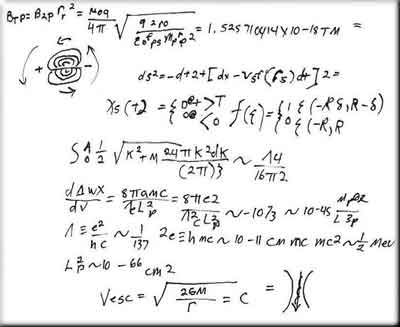 BTP = B2P r_r^2 = μ0q/4π √(q2ρ0/ε0^e ρs^m p r_p 2) = 1.525710414 x 10-18 TM =
+ -
ds2 = -d+2+[dx - Vsf(rs)dt]2 =
Xs(+2 = { 0@+ > T 0@ < 0 f(ξ) = { 1 { (-Rδ, R-δ) 0 { (-R, R
S A 0 1/2 √K^2 + M 24πK^2dK/(2π)3 ~ Λ4/16π2
dΔWX/dV = 8πamc/ħL_p^2 = 8πe2/ħ^2cL_p^2 ~ -10/3 ~ 10-45 MP2/L3p
1 ≡ e^2/hc ~ 1/137 2e ≡ hmc ~ 10-11 cm mc mc2 ~ 1/2 Mev
L_p^2 ~ 10 - 66 cm2
Vesc = √(2GM/r) = C =